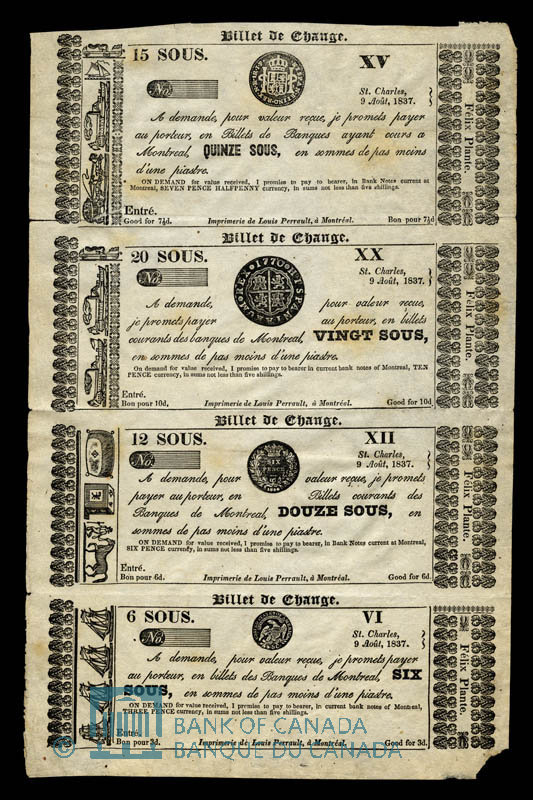 Billet de Change.
15 SOUS.
XV
No.
St. Charles,
9 Août, 1837.
A demande, pour valeur reçue, je promets payer
au porteur, en Billets de Banques ayant cours a
Montreal, QUINZE SOUS, en sommes de pas moins
d'une piastre.
ON DEMAND for value received, I promise to pay to bearer, in Bank Notes current at
Montreal, SEVEN PENCE HALFPENNY currency, in sums not less than five shillings.
Entré.
Good for 7½d. Imprimerie de Louis Perrault, à Montréal. Bon pour 7½d
Félix Plante.
Billet de Change.
20 SOUS.
XX
No.
1770
St. Charles,
9 Août, 1837.
A demande, pour valeur reçue,
je promets payer au porteur, en billets
courants des banques de Montreal, VINGT SOUS,
en sommes de pas moins d'une piastre.
On demand for value received, I promise to pay to bearer in current bank notes of Montreal, TEN
PENCE currency, in sums not less than five shillings.
Entré.
Bon pour 10d. Imprimerie de Louis Perrault, à Montréal. Good for 10d.
Félix Plante.
Billet de Change.
12 SOUS.
XII
No.
SIX
PENCE
St. Charles,
9 Août, 1837.
A demande, pour valeur reçue, je promets
payer au porteur, en Billets courants des
Banques de Montreal, DOUZE SOUS, en
sommes de pas moins d'une piastre.
ON DEMAND for value received, I promise to pay to bearer, in Bank Notes current at Montreal,
SIX PENCE currency, in sums not less than five shillings.
Entré.
Bon pour 6d. Imprimerie de Louis Perrault, à Montréal. Good for 6d.
Félix Plante.
Billet de Change.
6 SOUS.
VI
No.
St. Charles,
9 Août, 1837.
A demande, pour valeur reçue, je promets payer
au porteur, en billets des Banques de Montreal, SIX
SOUS, en sommes de pas moins d'une piastre.
ON DEMAND for value received, I promise to pay to bearer, in current Bank notes of Montreal,
THREE PENCE currency, in sums not less than five shillings.
Entré.
Bon pour 3d. Imprimerie de Louis Perrault, à Montréal. Good for 3d.
Félix Plante.
© BANK OF CANADA
BANQUE DU CANADA